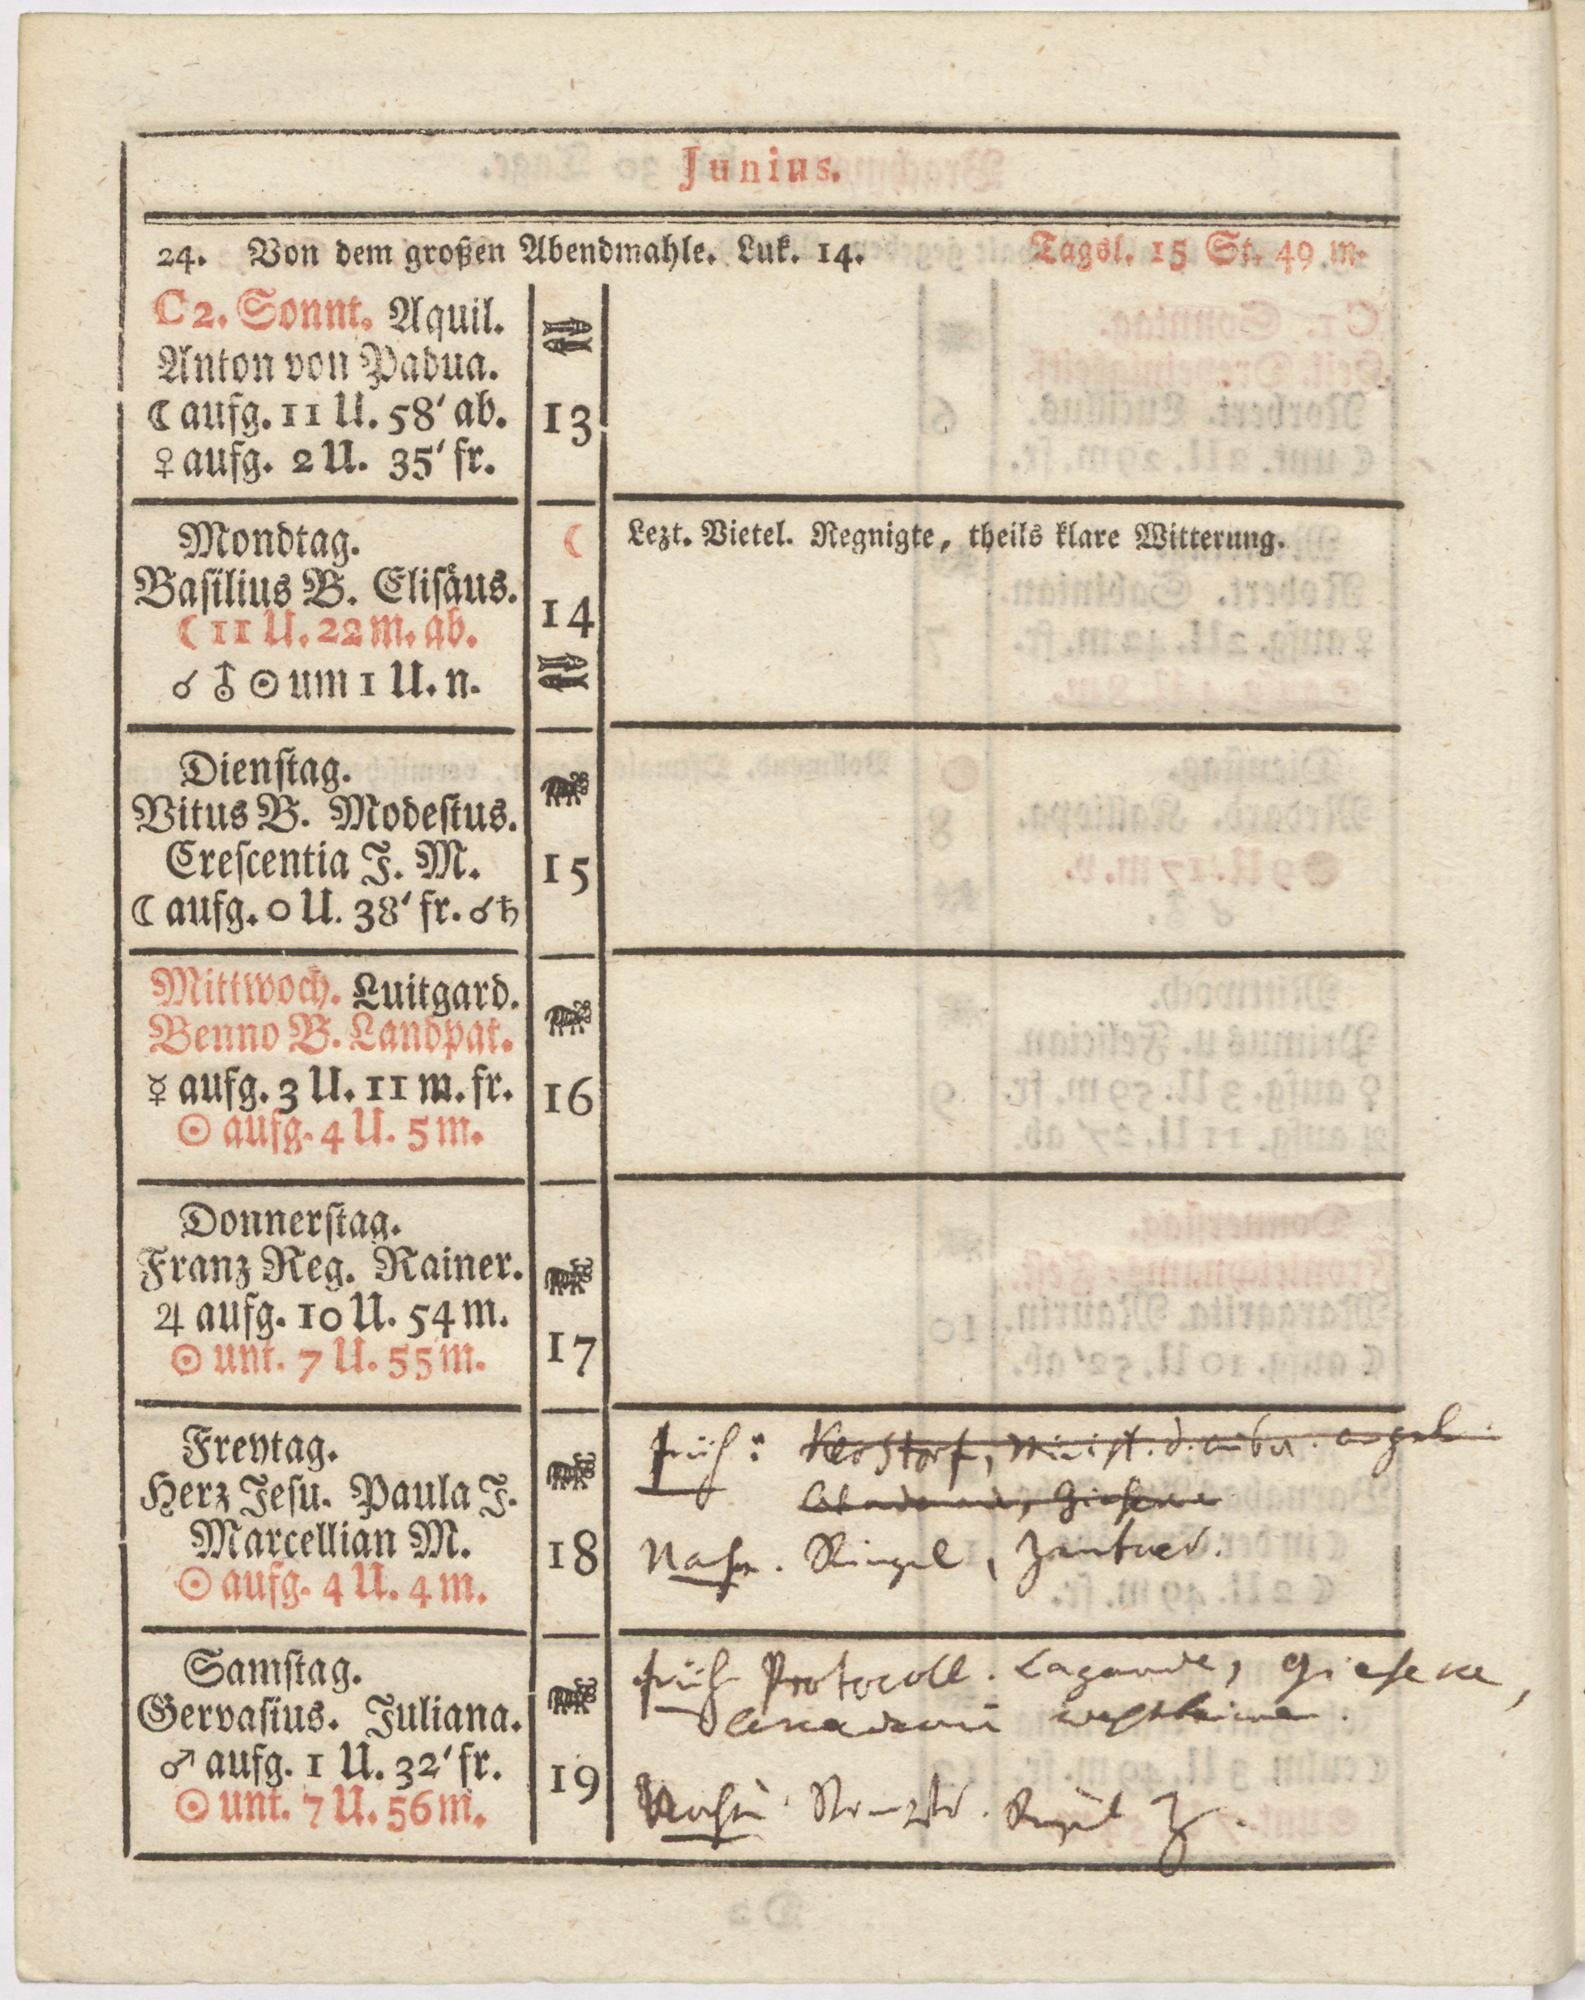 Junius.
24. Von dem großen Abendmahle. Luk. 14. Tagsl. 15 St. 49 m.
C 2. Sonnt. Aquil.
Anton von Padua.
☾ aufg. 11 U. 58′ ab.
♀ aufg. 2 U. 35′ fr.
13
Mondtag.
Basilius B. Elisäus.
☾ 11 U. 22 m. ab.
☌ ⛢ ☉ um 1 U. n.
☾
14
Lezt. Vietel. Regnigte, theils klare Witterung.
Dienstag.
Vitus B. Modestus.
Crescentia J. M.
☾ aufg. 0 U. 38′ fr. ☌ ♄
15
Mittwoch. Luitgard.
Benno B. Landpat.
☿ aufg. 3 U. 11 m. fr.
☉ aufg. 4 U. 5 m.
16
Donnerstag.
Franz Reg. Rainer.
♃ aufg. 10 U. 54 m.
☉ unt. 7 U. 55 m.
17
Freytag.
Herz Jesu. Paula J.
Marcellian M.
☉ aufg. 4 U. 4 m.
18
früh: Kerstorf, Minist. d.
Akademie, Giesecke
Nachm. Ringel, Zentner.
Samstag.
Gervasius. Juliana.
♂ aufg. 1 U. 32′ fr.
☉ unt. 7 U. 56 m.
19
früh Protocoll. Lagarde, Giesecke,
Akademie
Nachm. Ringel Z.